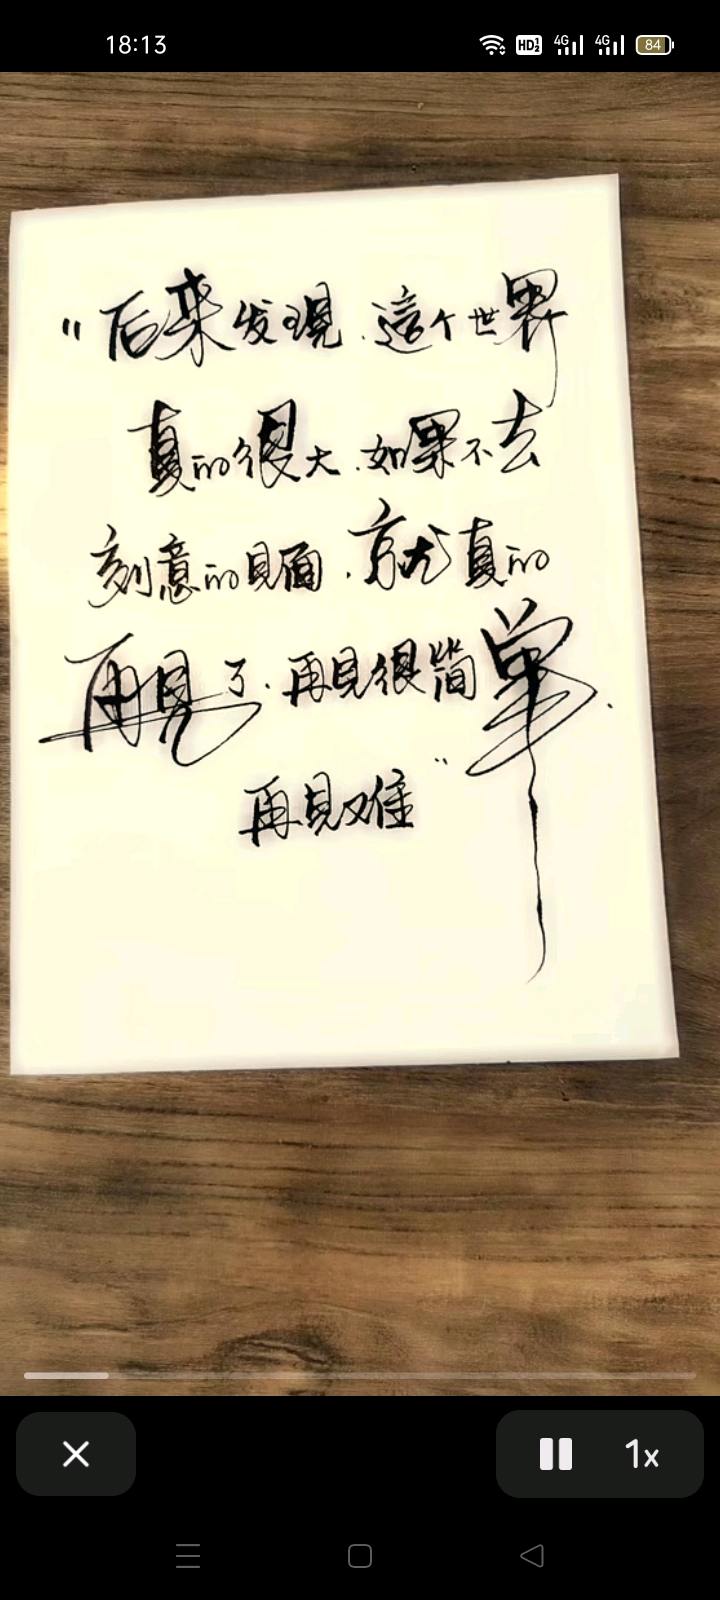 18:13
HD 1 2 4G 4G 84
"后来发現.這个世界
真的很大.如果不去
刻意的見面.就真的
再見了.再見很简单.
再見难"
1x